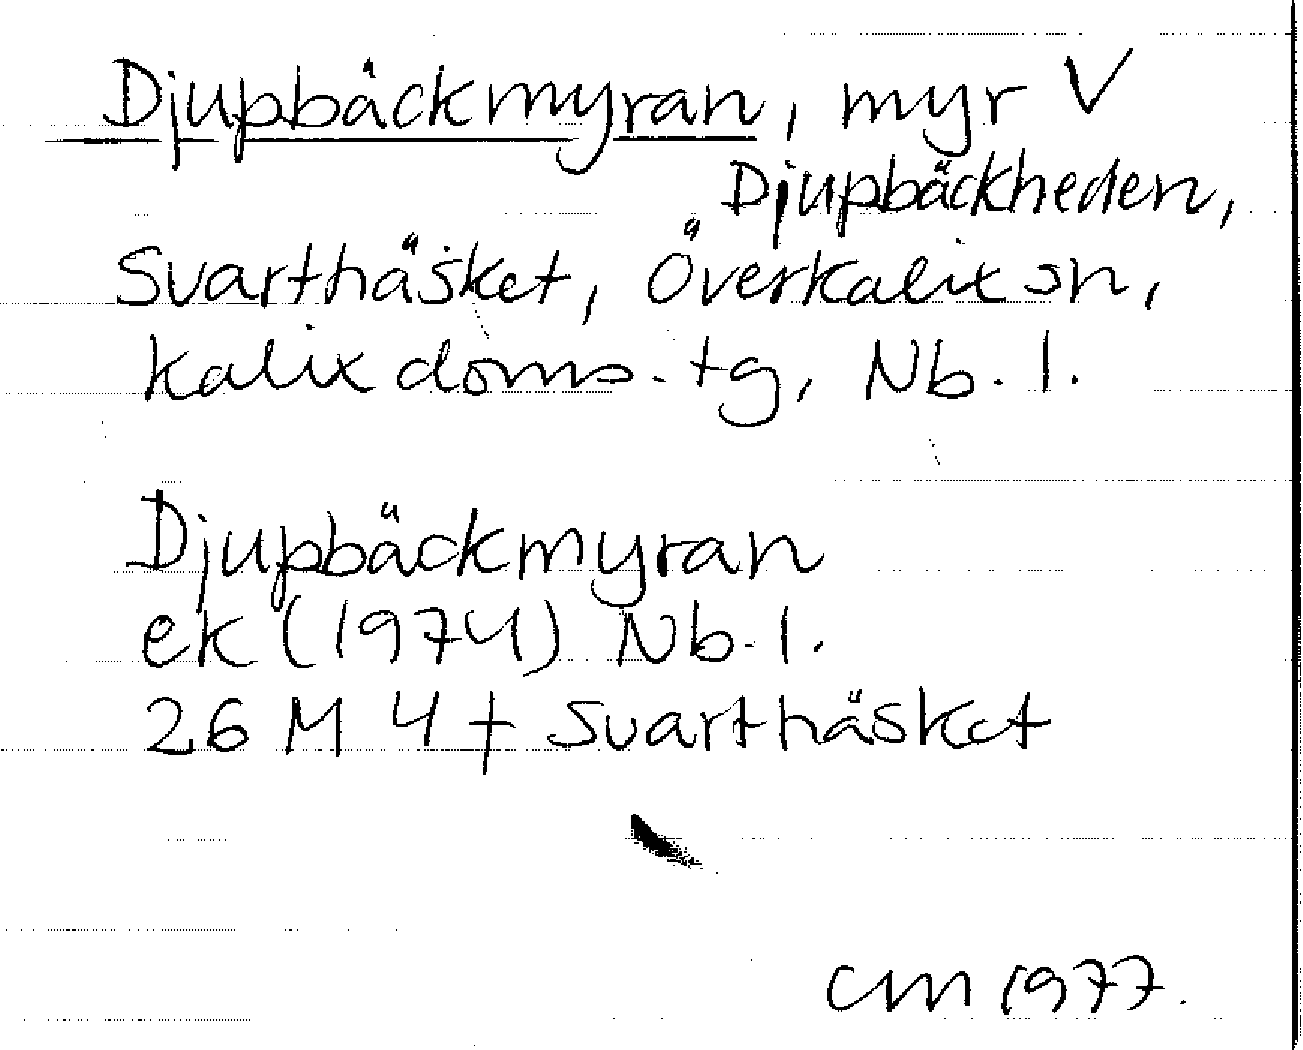 Djupbäckmyran, myr V
Djupbäckheden,
Svarthäsket, Överkalix sn,
Kalix doms. tg, Nb. l.
Djupbäckmyran
ek (1974) Nb. l.
26 M 4 f Svarthäsket
CM 1977.